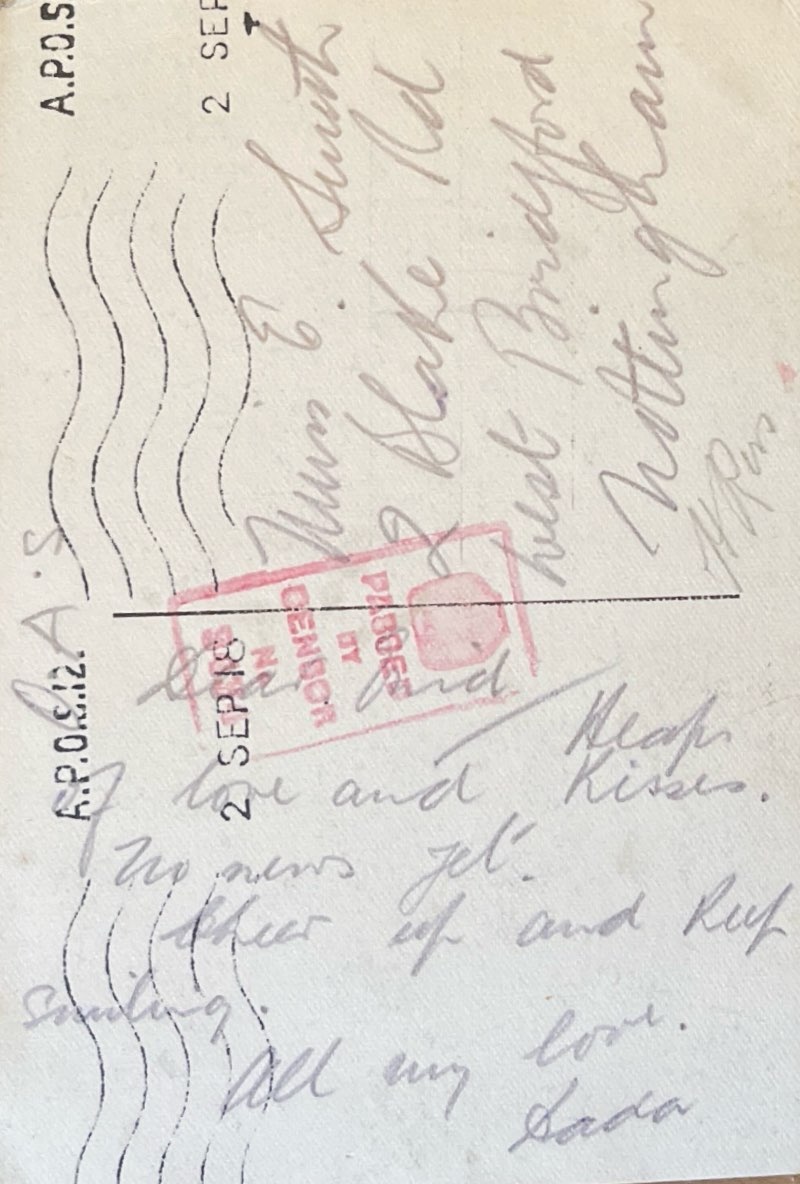 A.P.O.S
2 SEP
E. Smith
2 Blake Rd
West Bridgford
Nottingham
O.A.S
A.P.O.S.12.
2 SEP 18
PASSED
BY
CENSOR
IN
Dear
Heaps
of love and Kisses.
No news yet.
Cheer up and keep
smiling.
All my love.